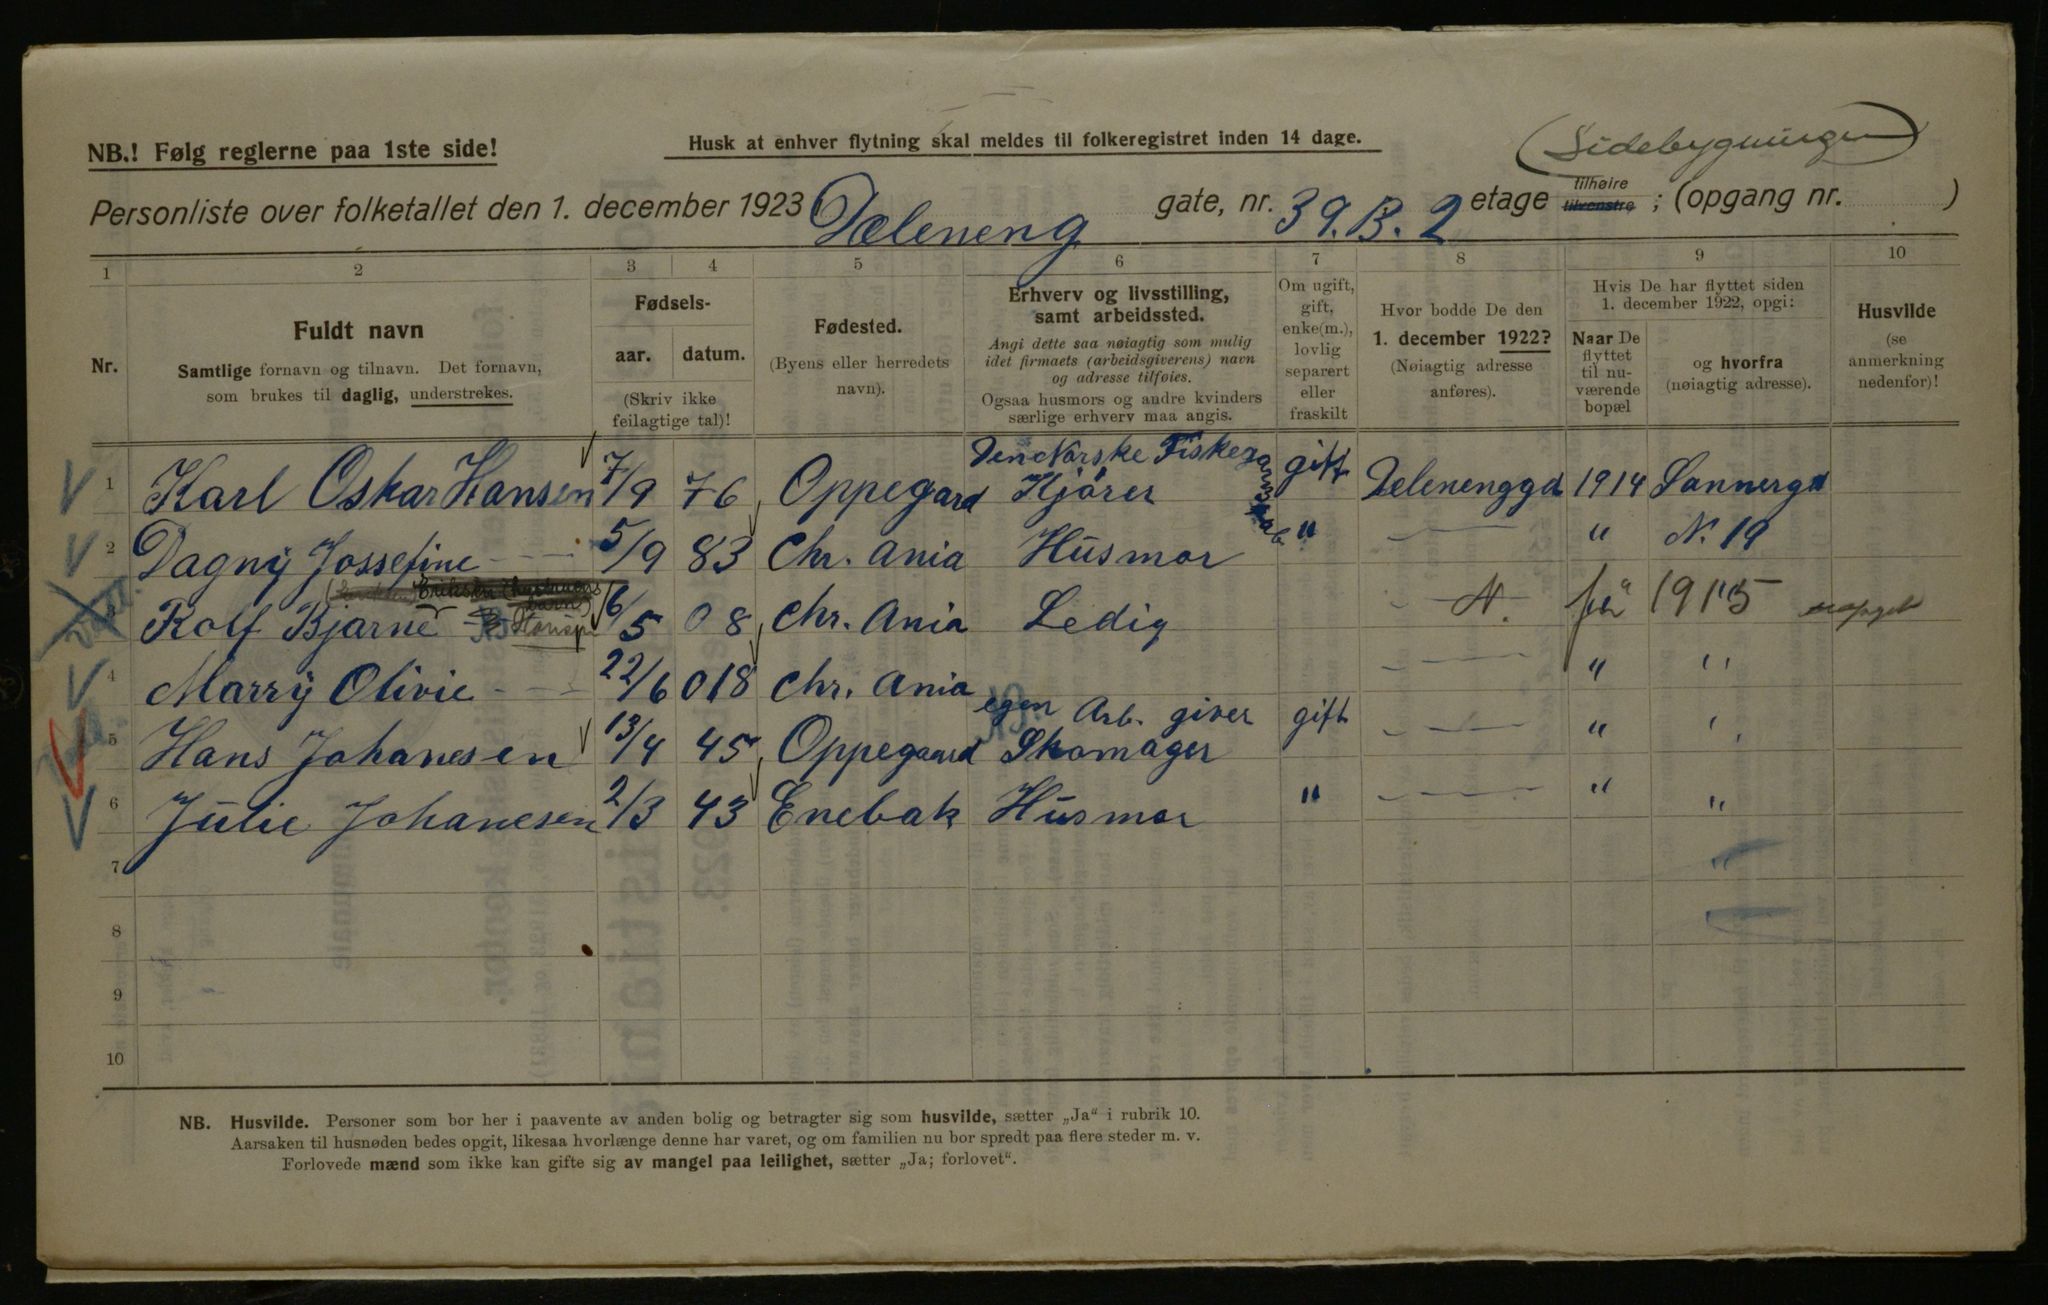 NB.! Følg reglerne paa 1ste side!
Husk at enhver flytning skal meldes til folkeregistret inden 14 dage.
(Sidebygningen)
Personliste over folketallet den 1. december 1923 Dæleneng gate, nr. 39.B. 2 etage tilhøire tilvenstre ; (opgang nr. )
1 2 3 4 5 6 7 8 9 10
Nr.
Fuldt navn
Samtlige fornavn og tilnavn. Det fornavn,
som brukes til daglig, understrekes.
Fødsels-
aar. datum.
(Skriv ikke
feilagtige tal)!
Fødested.
(Byens eller herredets
navn).
Erhverv og livsstilling,
samt arbeidssted.
Angi dette saa nøiagtig som mulig
idet firmaets (arbeidsgiverens) navn
og adresse tilføies.
Ogsaa husmors og andre kvinders
særlige erhverv maa angis.
Om ugift,
gift,
enke(m.),
lovlig
separert
eller
fraskilt
Hvor bodde De den
1. december 1922?
(Nøiagtig adresse
anføres).
Hvis De har flyttet siden
1. december 1922, opgi:
Naar De
flyttet
til nu-
værende
bopæl
og hvorfra
(nøiagtig adresse).
Husvilde
(se
anmerkning
nedenfor)!
Den Norske Fiskegarnsfab.
1 Karl Oskar Hansen 7/9 76 Oppegard Kjörer gift Delenenggd 1914 Sannergd
2 Dagny Jossefine - - 5/9 83 Chr. ania Husmor " — " N. 19
Eriksen
3 Rolf Bjarne Hansen 6/5 08 Chr. Ania Ledig N. før 1915
4 Marry Olivie - - 22/6 018 Chr. Ania — " "
egen Arb. giver
5 Hans Johanesen 13/4 45 Oppegaard Skomager gift — " "
6 Julie Johanesen 2/3 43 Enebak Husmor " — " "
7 "
8
9
10
NB. Husvilde. Personer som bor her i paavente av anden bolig og betragter sig som husvilde, sætter „Ja“ i rubrik 10.
Aarsaken til husnøden bedes opgit, likesaa hvorlænge denne har varet, og om familien nu bor spredt paa flere steder m. v.
Forlovede mænd som ikke kan gifte sig av mangel paa leilighet, sætter „Ja; forlovet“.